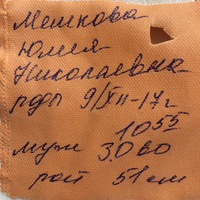 Мешкова
Юлия
Николаевна
рдп 9/XII-17г
10 55
муж 3.060
рост 51см